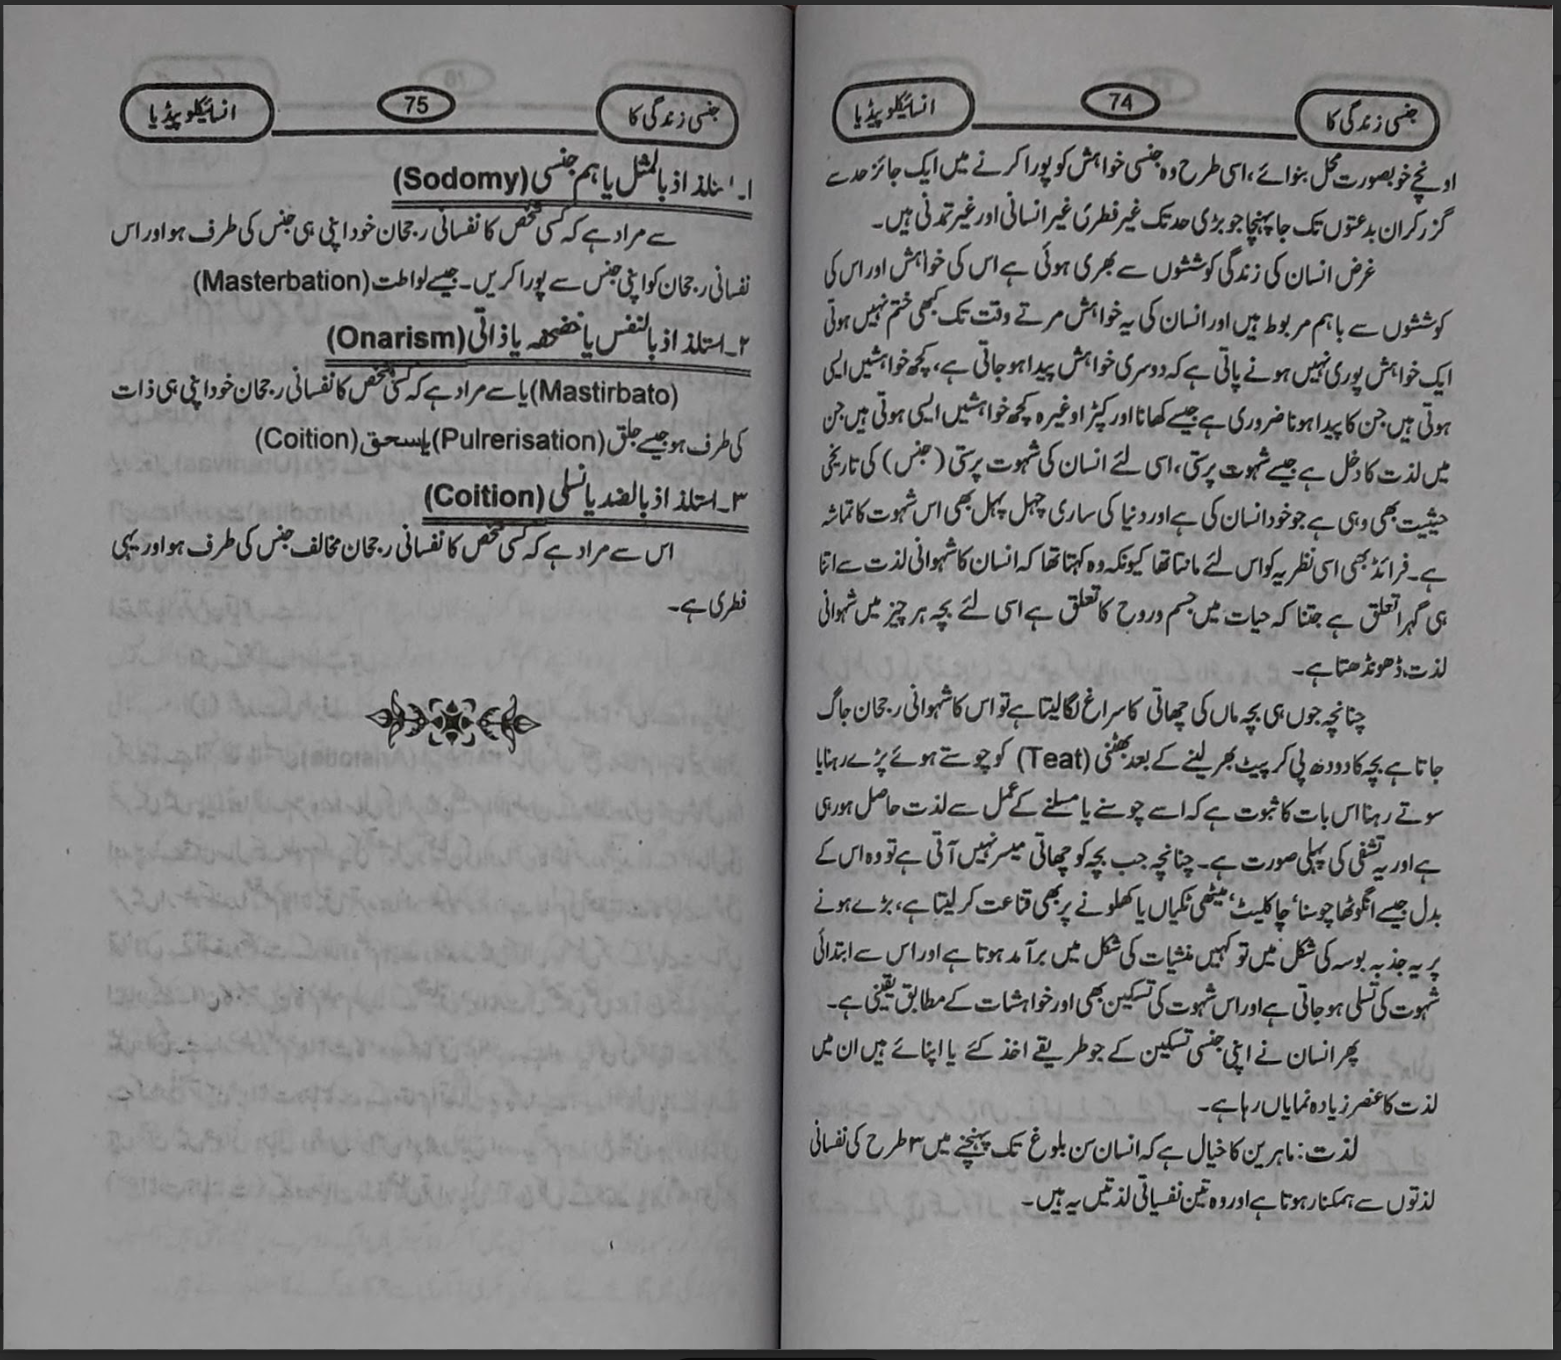 جنسی زندگی کا 74 انسائیکلوپیڈیا
اونچے خوبصورت محل بنوائے، اسی طرح وہ جنسی خواہش کو پورا کرنے میں ایک جائز حد سے
گزر کر ان بدعتوں تک جا پہنچا جو بڑی حد تک غیر فطری غیر انسانی اور غیر تمدنی ہیں۔
غرض انسان کی زندگی کوششوں سے بھری ہوئی ہے اس کی خواہش اور اس کی
کوششوں سے باہم مربوط ہیں اور انسان کی یہ خواہش مرتے وقت تک کبھی ختم نہیں ہوتی
ایک خواہش پوری نہیں ہونے پاتی ہے کہ دوسری خواہش پیدا ہو جاتی ہے، کچھ خواہشیں ایسی
ہوتی ہیں جن کا پیدا ہونا ضروری ہے جیسے کھانا اور کپڑا وغیرہ کچھ خواہشیں ایسی ہوتی ہیں جن
میں لذت کا دخل ہے جیسے شہوت پرستی، اسی لئے انسان کی شہوت پرستی (جنس) کی تاریخی
حیثیت بھی وہی ہے جو خود انسان کی ہے اور دنیا کی ساری چہل پہل بھی اس شہوت کا تماشہ
ہے۔ فرائڈ بھی اسی نظریہ کو اس لئے مانتا تھا کیونکہ وہ کہتا تھا کہ انسان کا شہوانی لذت سے اتنا
ہی گہرا تعلق ہے جتنا کہ حیات میں جسم و روح کا تعلق ہے اسی لئے بچہ ہر چیز میں شہوانی
لذت ڈھونڈھتا ہے۔
چنانچہ جوں ہی بچہ ماں کی چھاتی کا سراغ لگا لیتا ہے تو اس کا شہوانی رجحان جاگ
جاتا ہے بچہ کا دودھ پی کر پیٹ بھر لینے کے بعد بھٹنی (Teat) کو چوستے ہوئے پڑے رہنا یا
سوتے رہنا اس بات کا ثبوت ہے کہ اسے چوسنے یا مسلنے کے عمل سے لذت حاصل ہو رہی
ہے اور یہ تشفی کی پہلی صورت ہے۔ چنانچہ جب بچہ کو چھاتی میسر نہیں آتی ہے تو وہ اس کے
بدل جیسے انگوٹھا چوسنا' چاکلیٹ' میٹھی ٹکیاں یا کھلونے پر بھی قناعت کر لیتا ہے، بڑے ہونے
پر یہ جذبہ بوسہ کی شکل میں تو کہیں منشیات کی شکل میں برآمد ہوتا ہے اور اس سے ابتدائی
شہوت کی تسلی ہو جاتی ہے اور اس شہوت کی تسکین بھی اور خواہشات کے مطابق یقینی ہے۔
پھر انسان نے اپنی جنسی تسکین کے جو طریقے اخذ کئے یا اپنائے ہیں ان میں
لذت کا عنصر زیادہ نمایاں رہا ہے۔
لذت: ماہرین کا خیال ہے کہ انسان سن بلوغ تک پہنچنے میں ۳ طرح کی نفسانی
لذتوں سے ہمکنار ہوتا ہے اور وہ تین نفسیاتی لذتیں یہ ہیں۔
جنسی زندگی کا 75 انسائیکلوپیڈیا
۱۔ استلذاذ بالمثل یا ہم جنسی (Sodomy)
سے مراد ہے کہ کسی شخص کا نفسانی رجحان خود اپنی ہی جنس کی طرف ہو اور اس
نفسانی رجحان کو اپنی جنس سے پورا کریں۔ جیسے لواطت (Masterbation)
۲۔ استلذاذ بالنفس یا یا ذاتی (Onarism)
(Mastirbato) یا سے مراد ہے کہ کسی شخص کا نفسانی رجحان خود اپنی ہی ذات
کی طرف ہو جیسے جلق (Pulrerisation) یا سحق (Coition)
۳۔ استلذاذ بالضد یا نسلی (Coition)
اس سے مراد ہے کہ کسی شخص کا نفسانی رجحان مخالف جنس کی طرف ہو اور یہی
فطری ہے۔